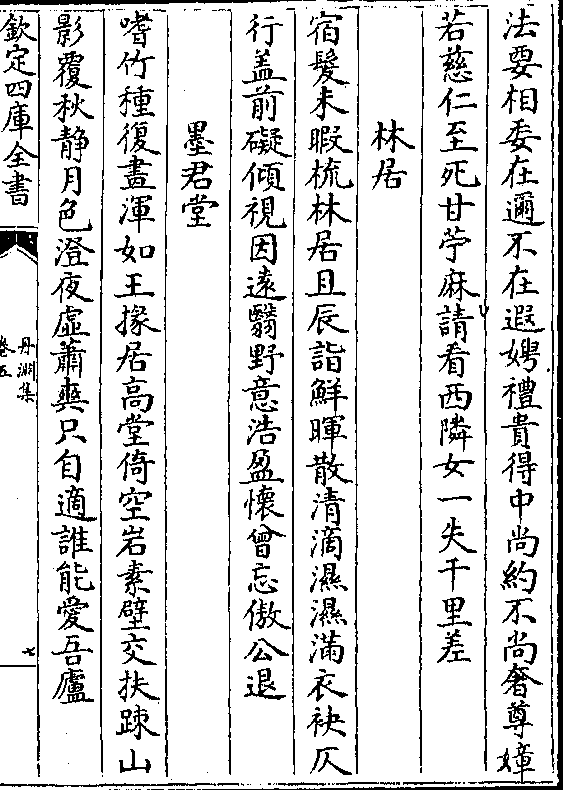 法要相委在邇不在遐娉禮貴得中尚約不尚奢尊嫜
若慈仁至死甘苧麻請看西隣女一失千里差
林居
宿髮未暇梳林居且辰詣鮮暉散清滴濕濕滿衣袂仄
行蓋前礙傾視因遠翳野意浩盈懷曾忘傲公退
墨君堂
嗜竹種復畫渾如王掾居高堂倚空岩素壁交扶踈山
影覆秋静月色澄夜虛蕭爽只自適誰能愛吾廬
欽定四庫全書
丹淵集
卷五
七